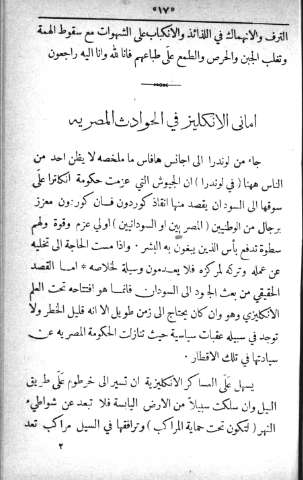 «١٧»
الترف والانهماك في اللذائذ والانكباب على الشهوات مع سقوط الهمة
وتغلب الجبن والحرص والطمع على طباعهم فانا لله وانا اليه راجعون
امانى الانكليز في الحوادث المصريه
جاء من لوندرا الى اجانس هافاس ما ملخصه لا يظن احد من
الناس ههنا (في لوندرا) ان الجيوش التي عزمت حكومة انكلترا على
سوقها الى السودان يقصد منها انقاذ كوردون فان كوردون معزز
برجال من الوطنيين (المصريين او السودانيين) اولي عزم وقوة ولهم
سطوة تدفع بأس الذين يبغون به الشر. واذا مست الحاجة الى تخليه
عن عمله وتركه لمركزه فلا يعدمون وسيلة لخلاصه * اما القصد
الحقيقي من بعث الجنود الى السودان فانما هو افتتاحه تحت العلم
الانكليزي وهو وان كان يحتاج الى زمن طويل الا انه قليل الخطر ولا
توجد في سبيله عقبات سياسية حيث تنازلت الحكومة المصريه عن
سيادتها في تلك الاقطار.
يسهل على العساكر الانكليزية ان تسير الى خرطوم على طريق
النيل وان سلكت سبيلاً من الارض اليابسة فلا تبعد عن شواطئ
النهر (لتكون تحت حماية المراكب) وترافقها في السيل مراكب تعد
٢